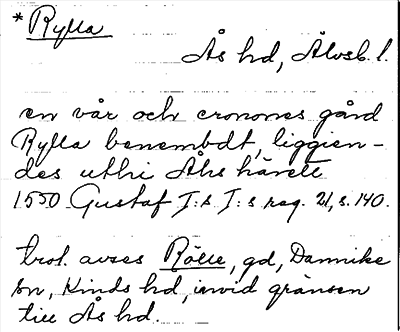 * Rylla
Ås hd, Älvsb. l.
en vår och cronones gård
Rylla benembdt, liggien-
des uthi Åhs härett
1550 Gustaf I:s I:s reg. 21, s. 140.
trol. avses Rölle, gd, Dannike
sn, Kinds hd, invid gränsen
till Ås hd.